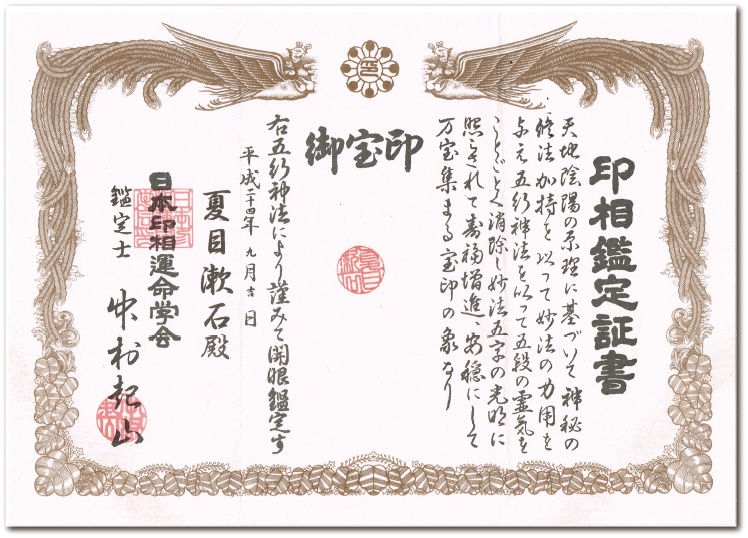 印相鑑定証書
天地陰陽の原理に基づいて神秘の
修法加持を以って妙法の力用を
与え五行神法を以って五段の霊気を
ことごとく消除し妙法五字の光明に
照らされて寿福増進、安穏にして
万宝集まる宝印の象なり
御宝印
右五行神法により謹みて開眼鑑定す
平成二十四年 九月吉日
夏目漱石殿
日本印相運命学会
鑑定士